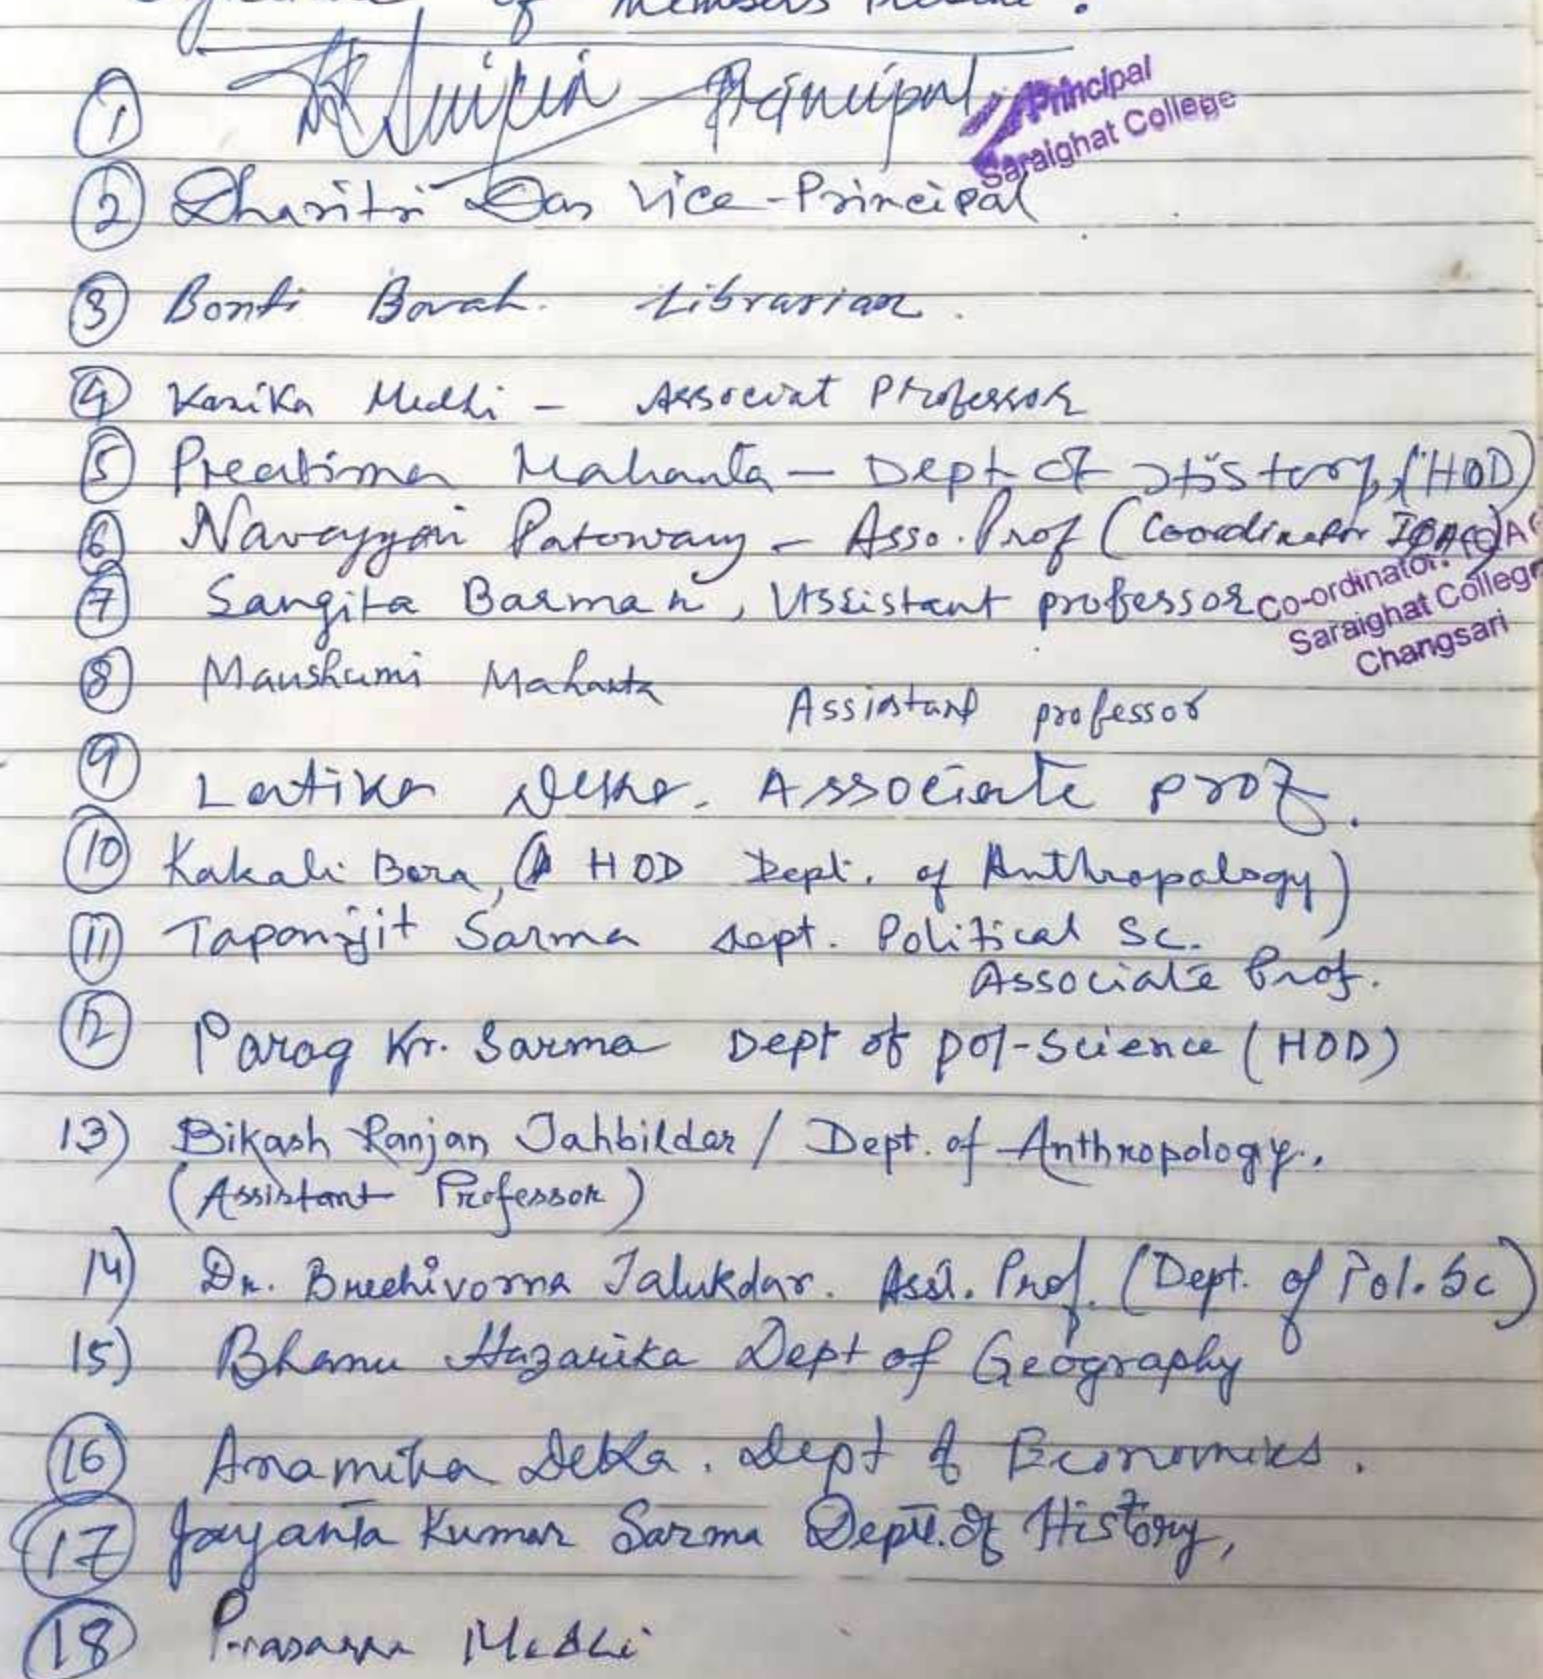 of Members
① Principal
Principal
Saraighat College
② Dharitri Das Vice-Principal
③ Bonti Borah. Librarian.
④ Kanika Medhi - Associat Professor
⑤ Preatima Mahanta - Dept of History, (HOD)
⑥ Patowary - Asso. Prof (Coordinator IQAC)
Co-ordinator
⑦ Sangita Barman, Assistant professor
Saraighat College
Changsari
⑧ Maushumi Mahanta Assistant professor
⑨ Latika Deka. Associate prof.
⑩ Kakali Bora, (HOD Dept. of Anthropology)
⑪ Taponjit Sarma dept. Political Sc.
Associate Prof.
⑫ Parag Kr. Sarma Dept of Pol-Science (HOD)
13) Bikash Ranjan Tahbildar / Dept. of Anthropology.
(Assistant Professor)
14) Dr. Talukdar. Asst. Prof. (Dept. of Pol. Sc)
15) Bhanu Hazarika Dept of Geography
⑯ Anamika Deka. Dept of Economics.
⑰ Jayanta Kumar Sarma Deptt. of History,
⑱ Prasanna Medhi